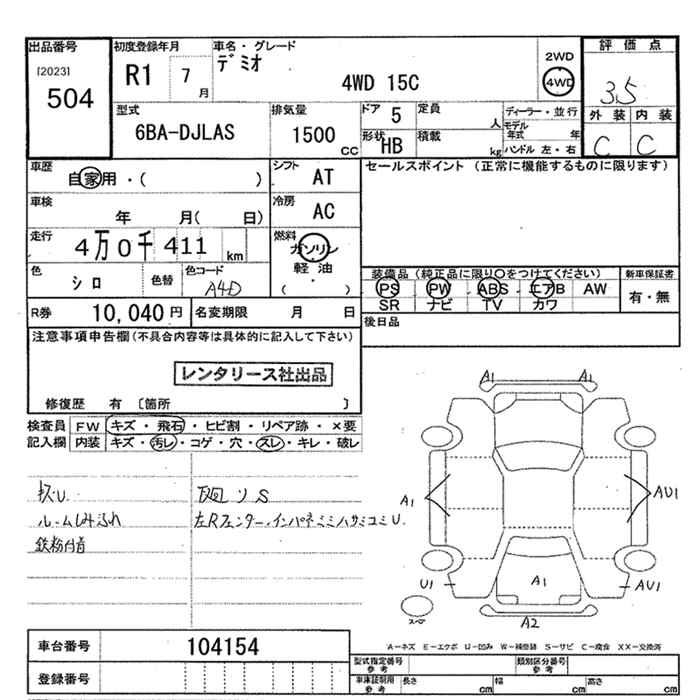 出品番号
[2023]
504
初度登録年月
R1 7月
車名・グレード
デミオ
4WD 15C
2WD
4WD
評価点
3.5
外装 内装
C C
型式
6BA-DJLAS
排気量
1500 CC
ドア 5
定員 人
形状 HB
積載 kg
ディーラー・並行
モデル年式 年
ハンドル 左・右
車歴
自家用・( )
シフト AT
車検
年 月( 日)
冷房 AC
走行
4万0千411 km
燃料
ガソリン
軽油
( )
色
シロ
色替
色コード
A4D
R券 10,040円
名変期限 月 日
セールスポイント (正常に機能するものに限ります)
装備品(純正品に限り○をつけてください)
PS PW ABS エアB AW
SR ナビ TV カワ
新車保証書
有・無
後日品
注意事項申告欄(不具合内容等は具体的に記入して下さい)
レンタリース社出品
修復歴 有 〔箇所 〕
検査員記入欄
FW キズ・飛石・ヒビ割・リペア跡・×要
内装 キズ・汚レ・コゲ・穴・スレ・キレ・破レ
ルームしみ汚れ
鉄粉付着
下廻りS
A1 A1
A1
AU1
U1
A1
AU1
A2
スペア
車台番号 104154
登録番号
A=キズ E=エクボ U=凹み W=補修跡 S=サビ C=腐食 XX=交換済
型式指定番号 参考
類別区分番号 参考
車庫証明用 参考
長さ cm
幅 cm
高さ cm